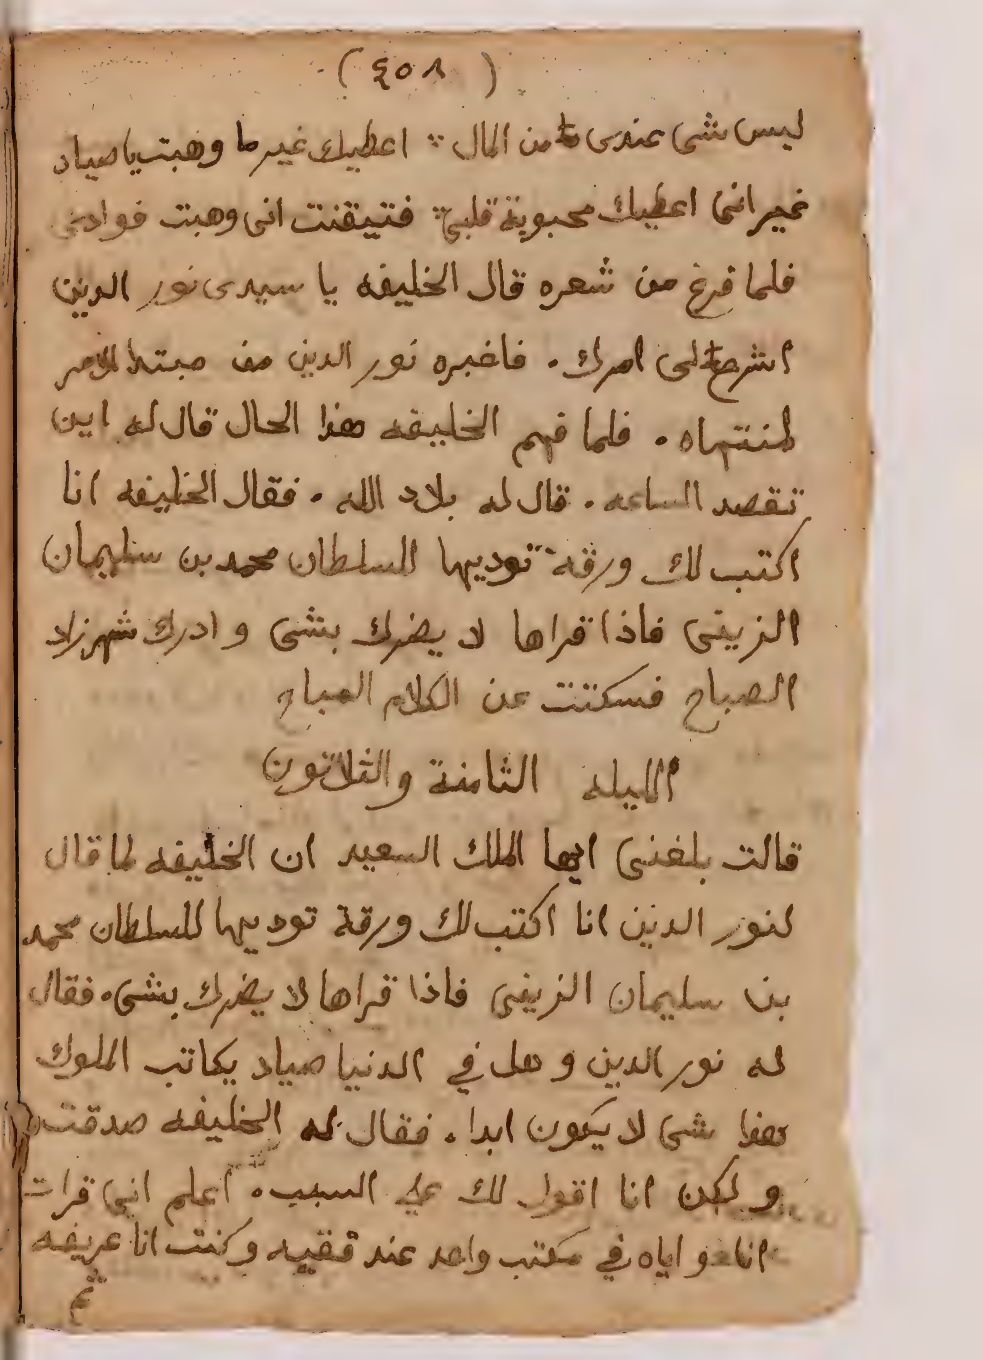 (٤٥٨)
ليس شى عندى من المال ؞ اعطيك غير ما وهبت يا صياد
غير انى اعطيك محبوبة قلبى ؞ فتيقنت انى وهبت فوادى
فلما فرغ من شعره قال الخليفه يا سيدى نور الدين
اشرح لى امرك . فاخبره نور الدين من مبتدا الامر
لمنتهاه . فلما فهم الخليفه هذا الحال قال له اين
تقصد الساعه . قال له بلاد الله . فقال الخليفه انا
اكتب لك ورقة توديها للسلطان محمد بن سليمان
الزينى فاذا قراها لا يضرك بشى وادرك شهرزاد
الصباح فسكتت عن الكلام المباح
الليله الثامنة والثلاثون
قالت بلغنى ايها الملك السعيد ان الخليفه لما قال
لنور الدين انا اكتب لك ورقة توديها للسلطان محمد
بن سليمان الزينى فاذا قراها لا يضرك بشى . فقال
له نور الدين وهل في الدنيا صياد يكاتب الملوك
هذا شى لا يكون ابدا . فقال له الخليفه صدقت
ولكن انا اقول لك على السبب . اعلم انى قرات
انا واياه في مكتب واحد عند فقيه وكنت انا عريفه
ثم